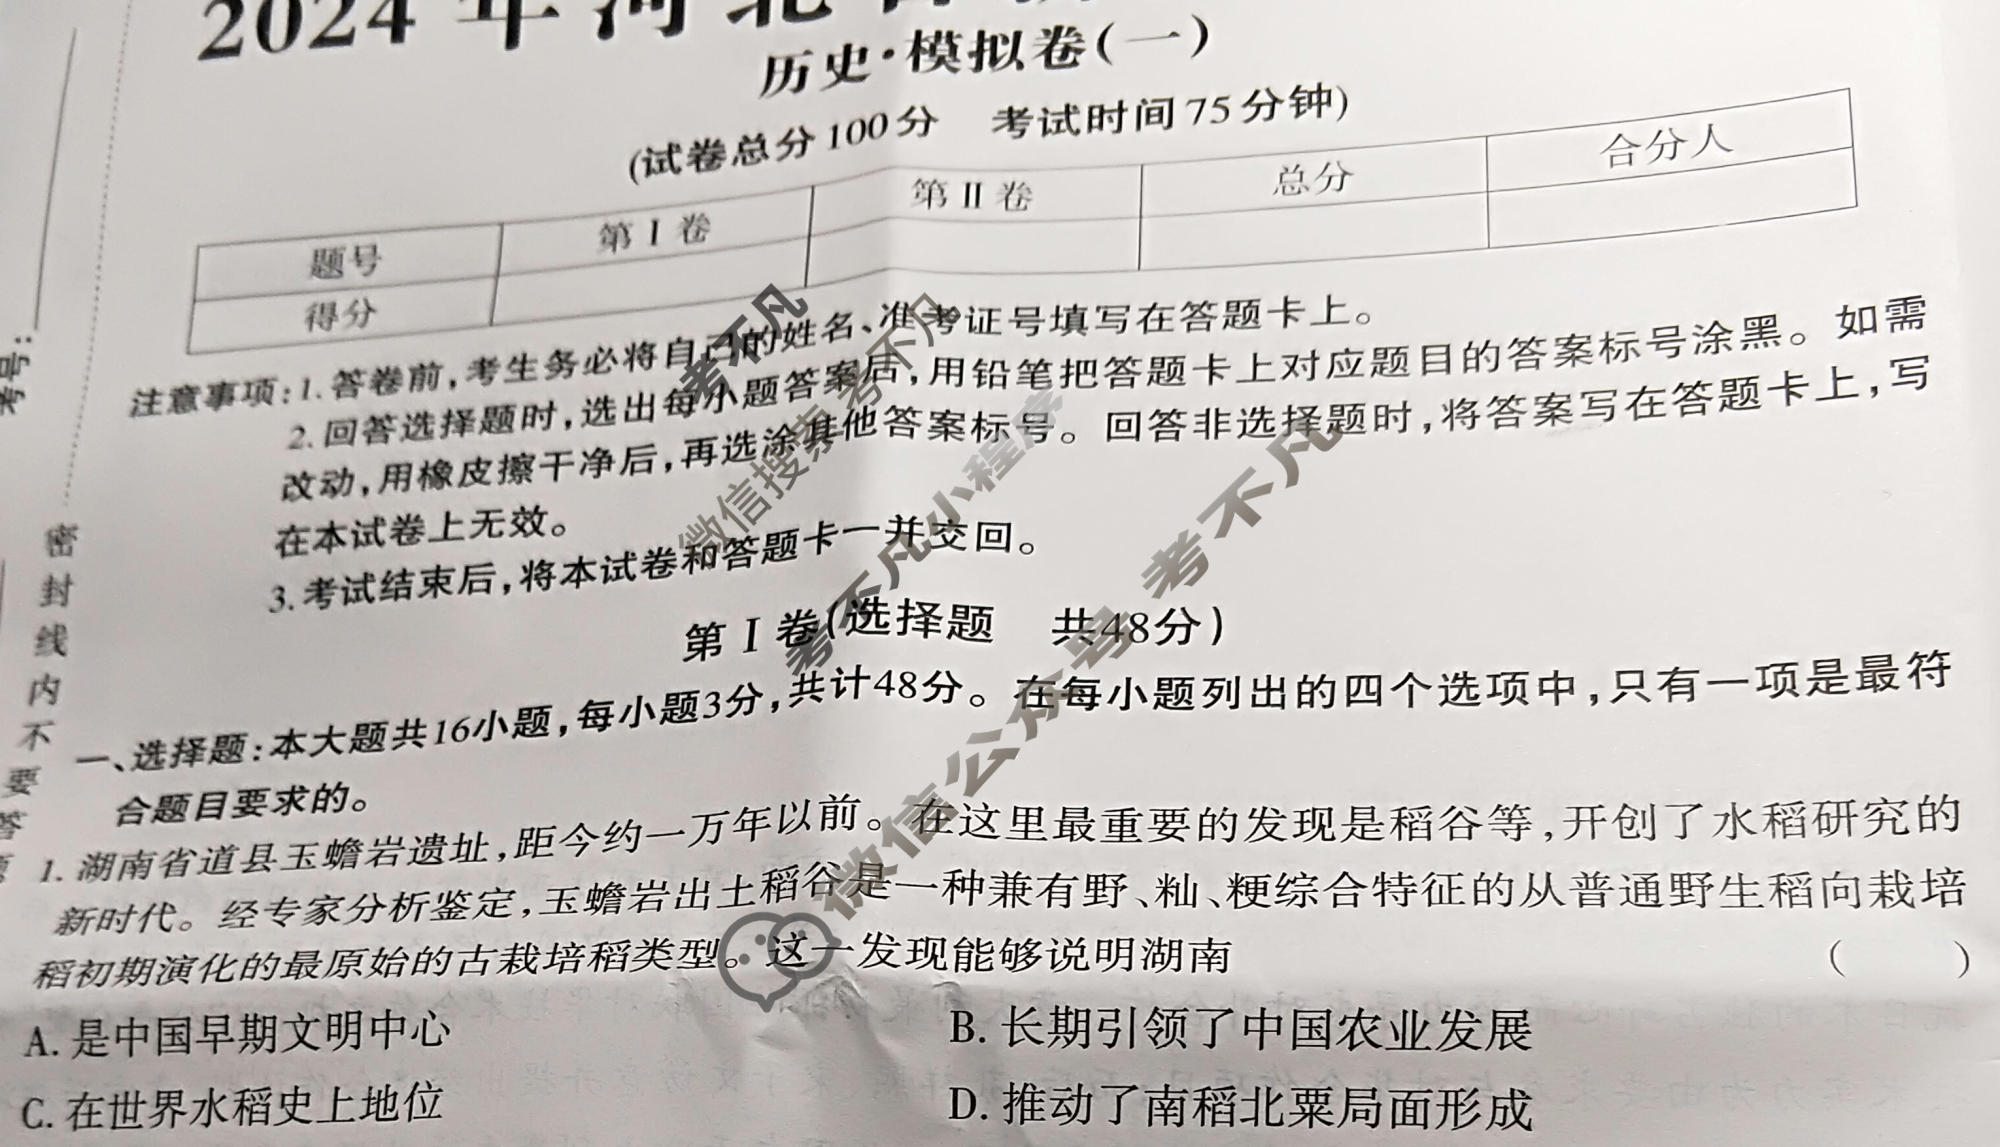 2024年河北省
历史·模拟卷(一)
(试卷总分100分 考试时间75分钟)
题号 第Ⅰ卷 第Ⅱ卷 总分 合分人
得分
注意事项:1.答卷前,考生务必将自己的姓名、准考证号填写在答题卡上。
2.回答选择题时,选出每小题答案后,用铅笔把答题卡上对应题目的答案标号涂黑。如需
改动,用橡皮擦干净后,再选涂其他答案标号。回答非选择题时,将答案写在答题卡上,写
在本试卷上无效。
3.考试结束后,将本试卷和答题卡一并交回。
第Ⅰ卷(选择题 共48分)
一、选择题:本大题共16小题,每小题3分,共计48分。在每小题列出的四个选项中,只有一项是最符
合题目要求的。
1.湖南省道县玉蟾岩遗址,距今约一万年以前。在这里最重要的发现是稻谷等,开创了水稻研究的
新时代。经专家分析鉴定,玉蟾岩出土稻谷是一种兼有野、籼、粳综合特征的从普通野生稻向栽培
稻初期演化的最原始的古栽培稻类型。这一发现能够说明湖南 ( )
A.是中国早期文明中心 B.长期引领了中国农业发展
C.在世界水稻史上地位 D.推动了南稻北粟局面形成
考号:
密封线内不要答题
考不凡
微信搜索考不凡
考不凡小程序
微信公众号 考不凡